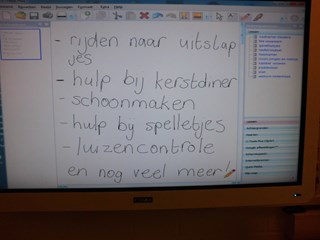 - rijden naar uitstap
jes
- hulp bij kerstdiner
- schoonmaken
- hulp by spelletjes
- luizencontrole
en nog veel meer!